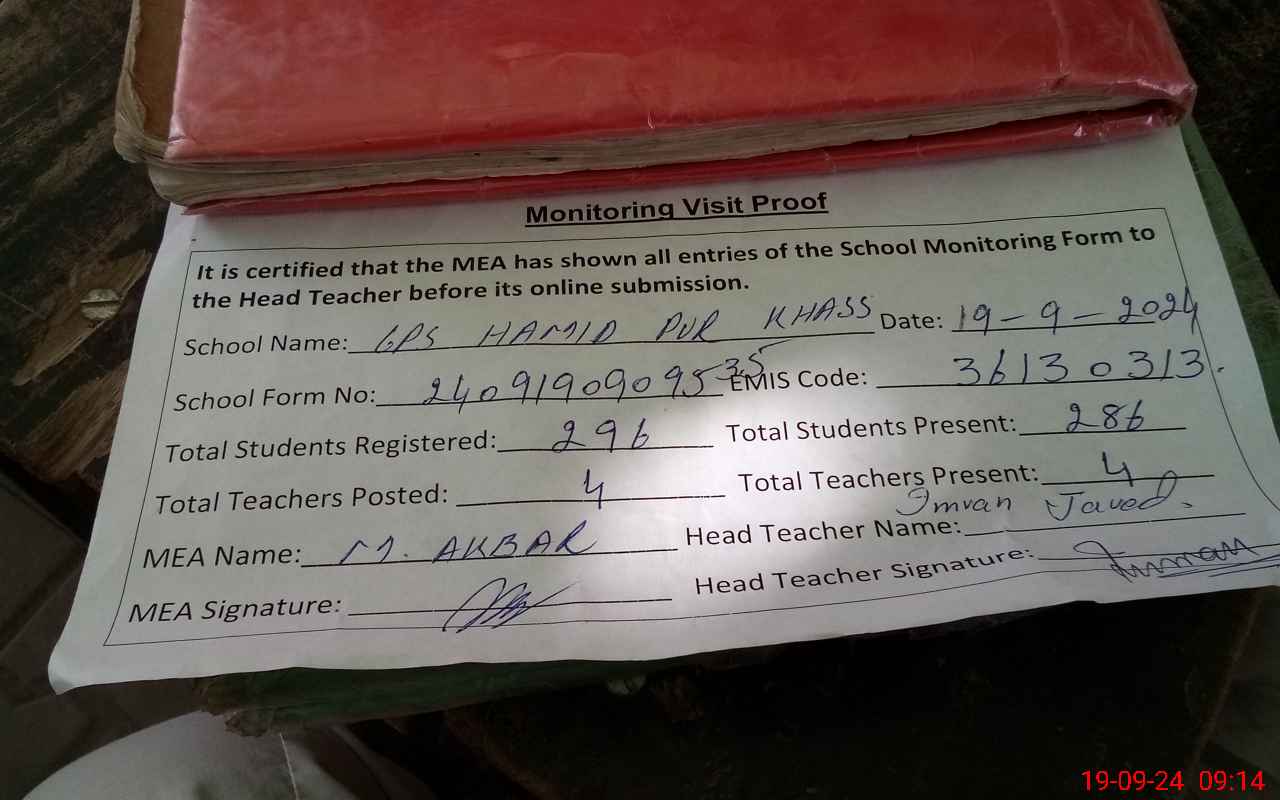 Monitoring Visit Proof
It is certified that the MEA has shown all entries of the School Monitoring Form to
the Head Teacher before its online submission.
School Name: GPS HAMID PUR KHASS Date: 19-9-2024
School Form No: 2409190909535 EMIS Code: 36130313
Total Students Registered: 296 Total Students Present: 286
Total Teachers Posted: 4 Total Teachers Present: 4
MEA Name: M. AKBAR Head Teacher Name: Imran Javed.
MEA Signature: Head Teacher Signature:
19-09-24 09:14